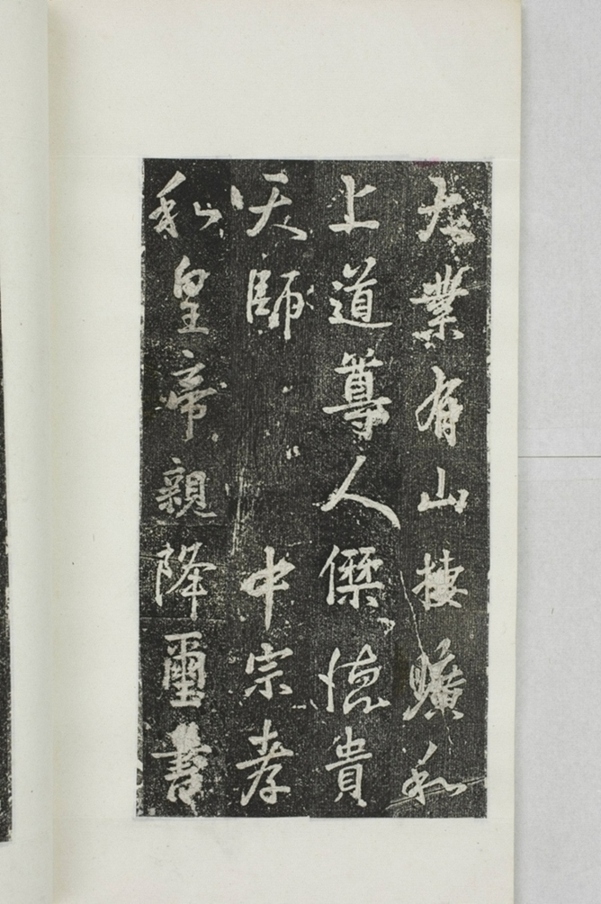 大業有山棲曠和
上道尊人傑德貴
天師　中宗孝
和皇帝親降璽書